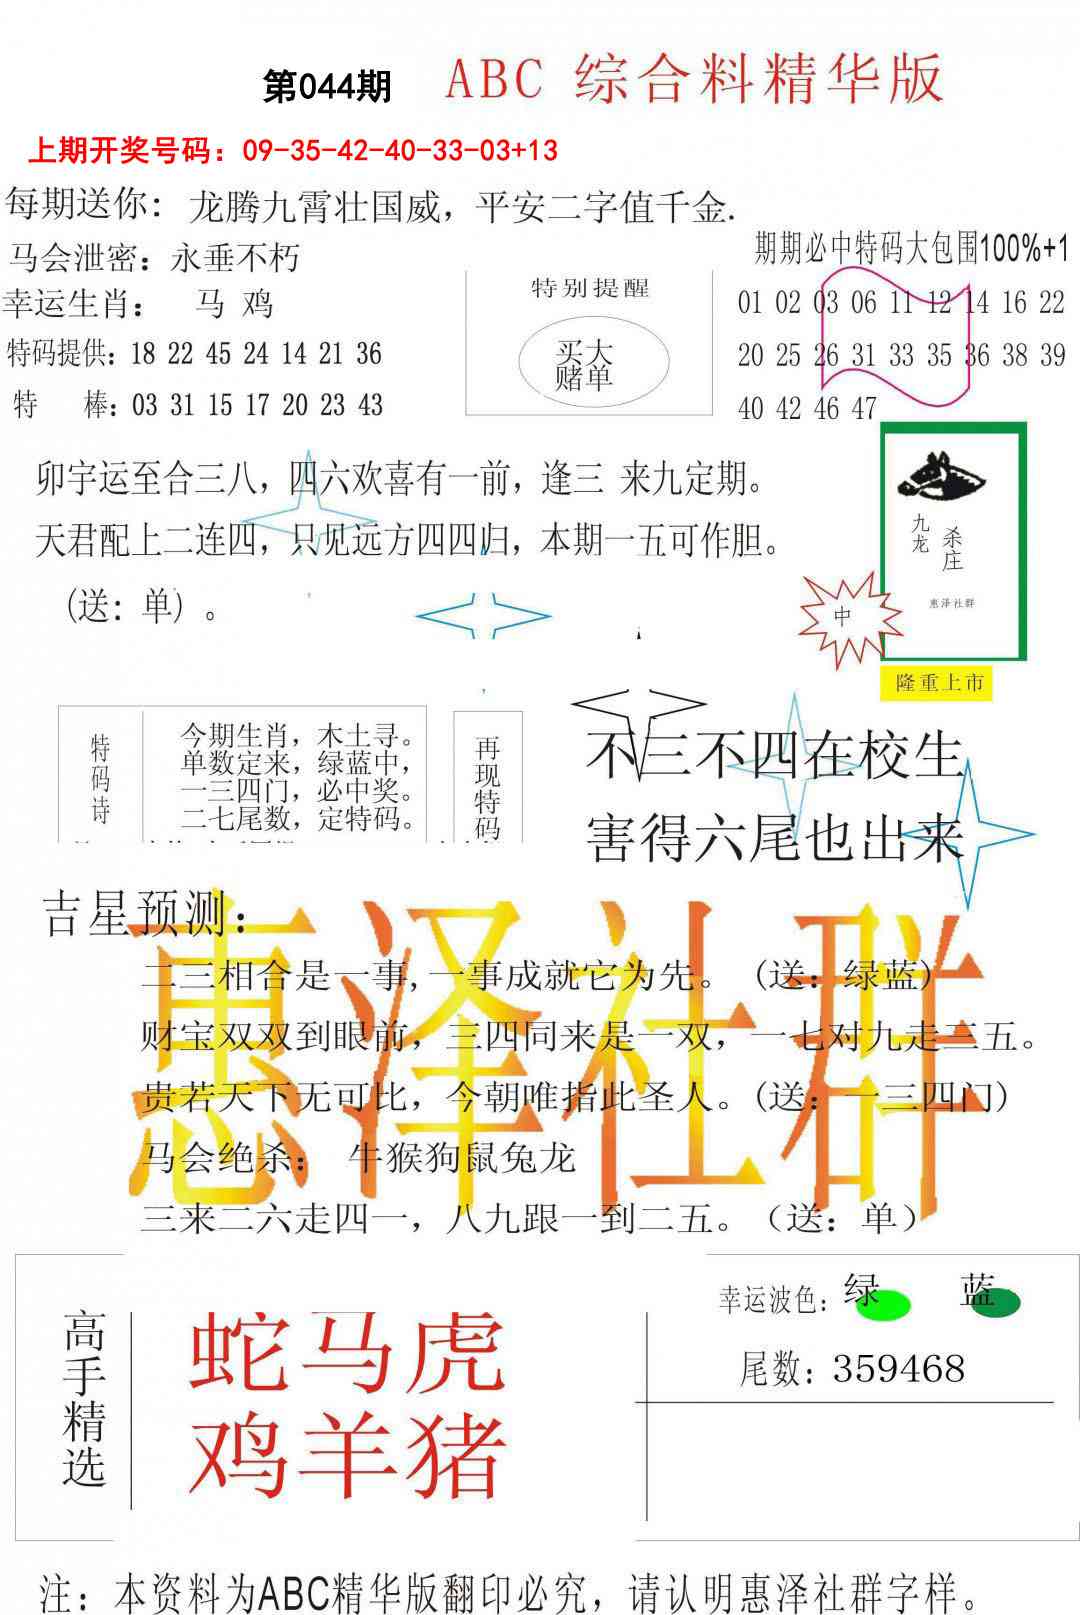 第044期 ABC 综合料精华版
上期开奖号码：09-35-42-40-33-03+13
每期送你：龙腾九霄壮国威，平安二字值千金.
马会泄密：永垂不朽
幸运生肖： 马 鸡
特码提供：18 22 45 24 14 21 36
特 棒：03 31 15 17 20 23 43
特别提醒
买大
赌单
期期必中特码大包围100%+1
01 02 03 06 11 12 14 16 22
20 25 26 31 33 35 36 38 39
40 42 46 47
卯宇运至合三八，四六欢喜有一前，逢三 来九定期。
天君配上二连四，只见远方四四归，本期一五可作胆。
(送：单) 。
九龙
杀庄
惠泽社群
中
隆重上市
特码诗
今期生肖，木土寻。
单数定来，绿蓝中，
一三四门，必中奖。
二七尾数，定特码。
再现特码
不三不四在校生
害得六尾也出来
吉星预测：
惠泽社群
二三相合是一事, 一事成就它为先。 (送：绿蓝)
财宝双双到眼前，三四同来是一双，一七对九走三五。
贵若天下无可比，今朝唯指此圣人。(送：一三四门)
马会绝杀： 牛猴狗鼠兔龙
三来二六走四一，八九跟一到二五。（送：单）
高手精选
蛇马虎
鸡羊猪
幸运波色：绿 蓝
尾数：359468
注：本资料为ABC精华版翻印必究，请认明惠泽社群字样。